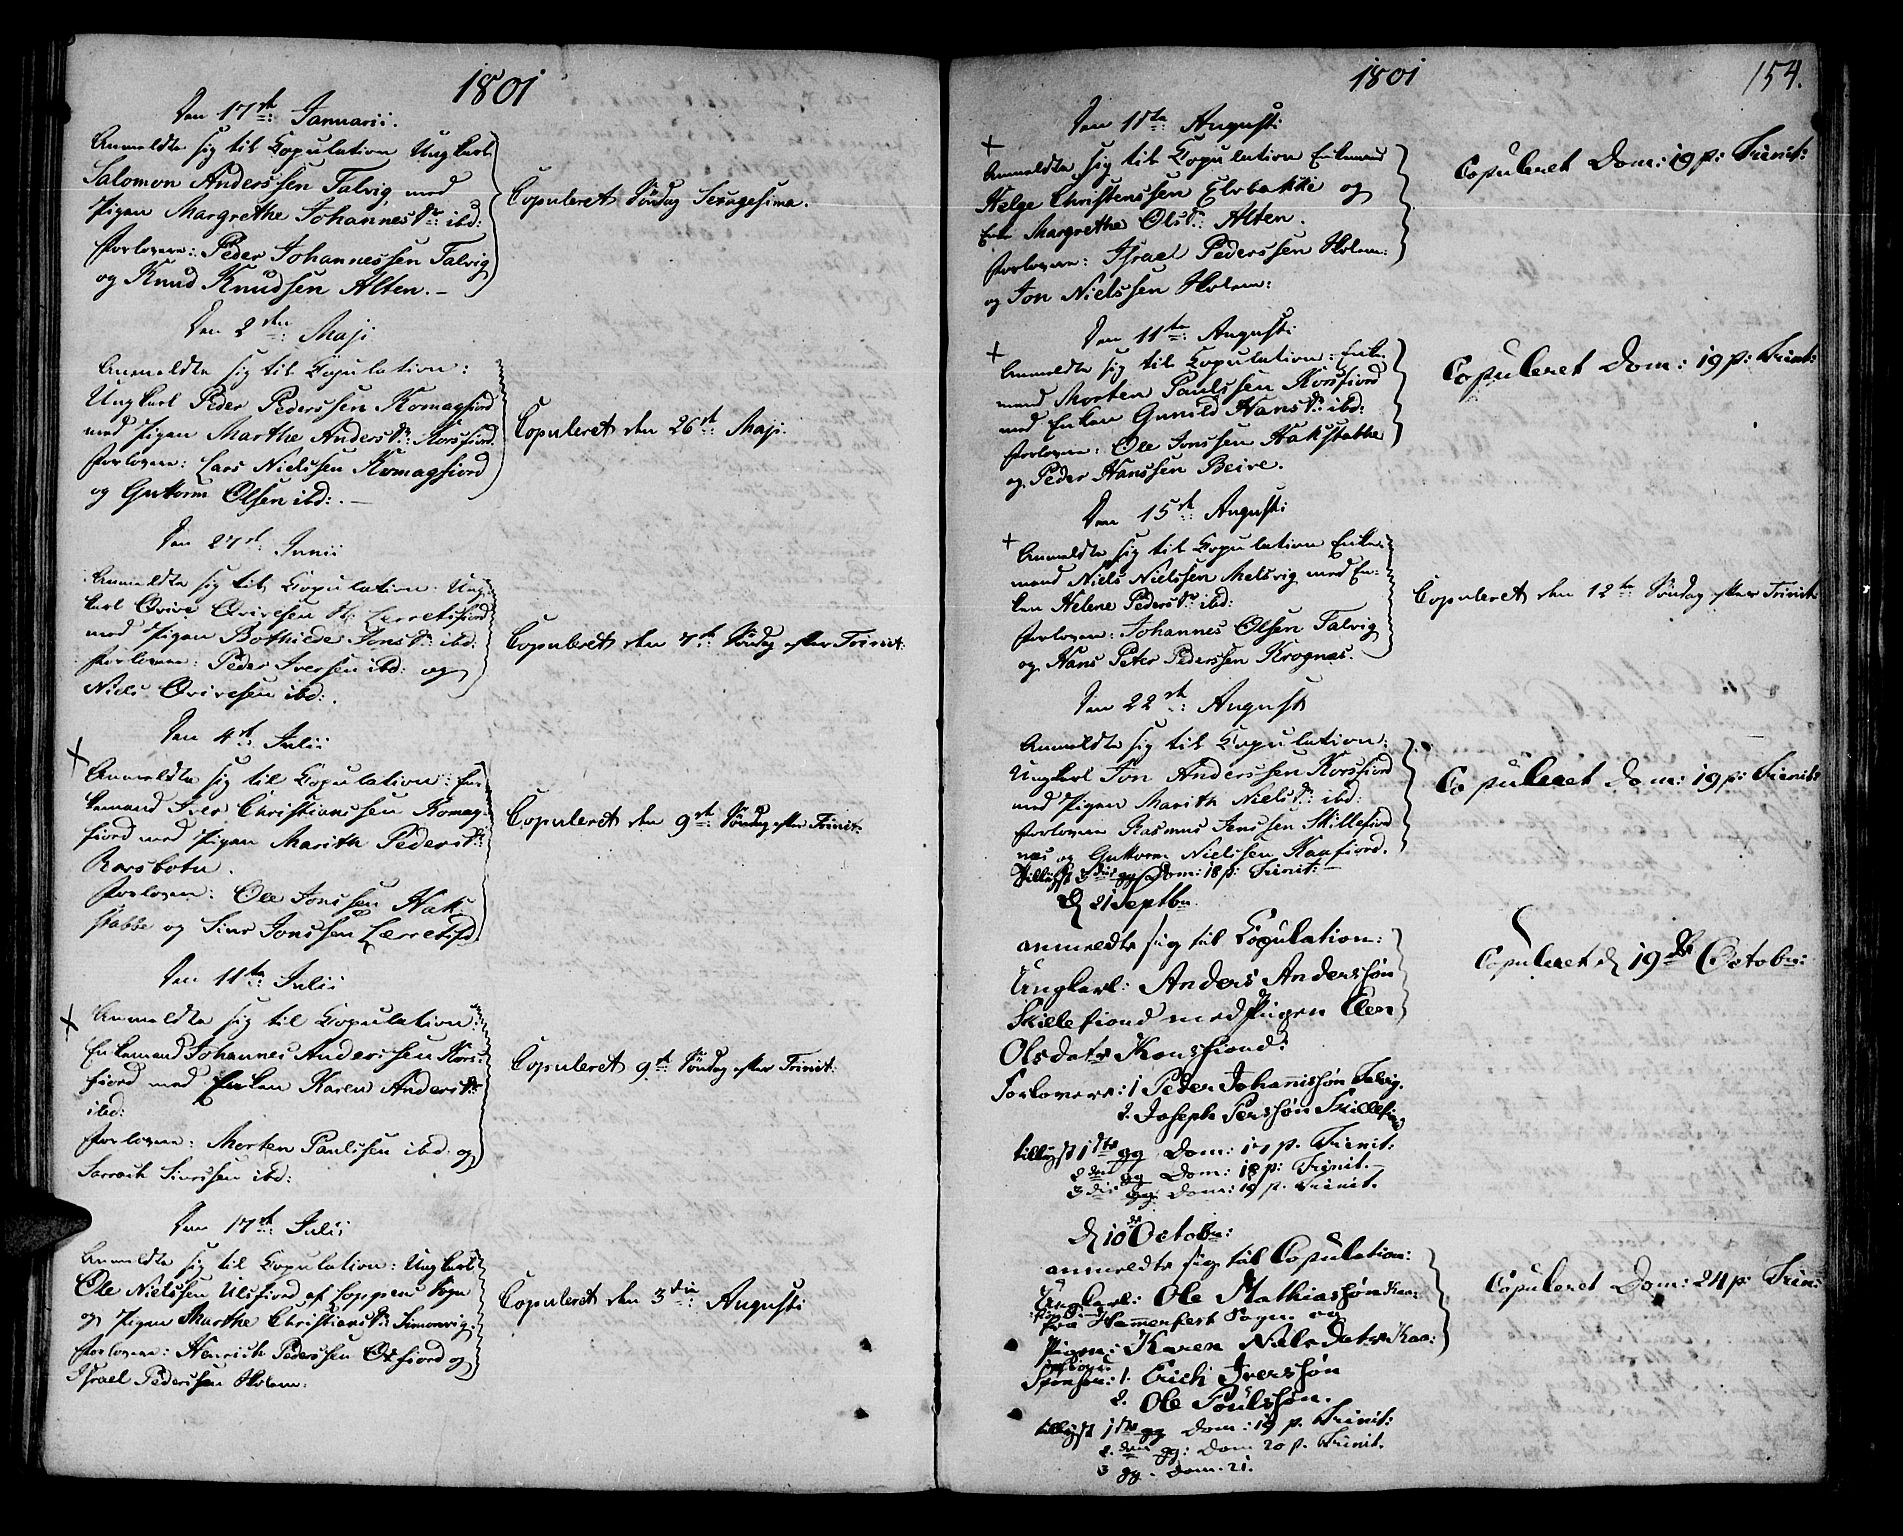 1801
Den 17de: Januarii.
Anmeldte sig til Copulation Ungkarl
Salomon Anderssen Talvig med
Pigen Margrethe Johannesdr: ibd:
Forlovere: Peder Johannessen Talvig
og Knud Knudsen Alten.
Copuleret Søndag Sexagesima.
Den 2den: Maji
Anmeldte sig til Copulation:
Ungkarl Peder Pederssen Komagfiord
med Pigen Marthe Andersdr: Korsfiord.
Forlovere: Lars Nielssen Komagfiord
og Guttorm Olsen ibd:.
Copuleret den 26de: Maji.
Den 27de: Junii
Anmeldte sig til Copulation: Ung-
karl Qvive Qvivesen Lerretsfiord
med Pigen Bothilde Jonsdr: ibd:
Forlovere: Peder Iversen ibd: og
Niels Qvivesen ibd:.
Copuleret den 7de: Søndag efter Trinit:
Den 4de: Julii
Anmeldte sig til Copulation: En-
kemand Iver Christianssen Komag-
fiord med Pigen Marith Pedersdr:
Rarsbotn.
Forlovere: Ole Jonssen Hak-
stabbe og Siur Jonssen Lerretsfd.
Copuleret den 9de: Søndag efter Trinit:
Den 11te: Julii
Anmeldte sig til Copulation:
Enkemand Johannes Anderssen Kors-
fiord med Enken Karen Andersdr:
ibd:
Forlovere: Morten Paulssen ibd: og
Siurssen ibd:
Copuleret 9de: Søndag efter Trinit:
Den 17de: Julii
Anmeldte sig til Copulation: Ungkarl
Ole Nielssen Ulsfiord af Loppens Sogn
og Pigen Marthe Christiansdr: Simonvig.
Forlovere: Henrich Pederssen Oxfiord og
Israel Pederssen Holm:
Copuleret den 3die: Augusti
1801
154.
Den 1ste Augusti
Anmeldte sig til Copulation Enkemand
Helge Christenssen Elvbakke og
Enke Margrethe Olsdr: Alten.
Forlovere: Israel Pederssen Holm:
og Jon Nielssen Holm:
Copuleret Dom: 19 p: Trinit:
Den 11te: Augusti
Anmeldte sig til Copulation: Enke-
mand Morten Paulssen Korsfiord
med Enken Gunild Hansdr: ibd:
Forlovere: Ole Jonssen Hakstabbe
og Peder Hanssen Beive.
Copuleret Dom: 19 p: Trinit:
Den 15de: Augusti
Anmeldte sig til Copulation Enke-
mand Niels Nielssen Melsvig med En-
ken Helene Pedersdr: ibd:
Forlovere: Johannes Olsen Talvig
og Hans Peter Pederssen Krognæs.
Copuleret den 12te Søndag efter Trinit:
Den 22de: August
Anmeldte sig til Copulation:
Ungkarl Jon Anderssen Korsfiord
med Pigen Marith Nielsdr: ibd:
Forlovere Rasmus Jenssen Skillefiord
næs og Guttorm Nielssen Kaafiord.
Tillyst 3die gg Dom: 18 p: Trinit:
Copuleret Dom: 19 p: Trinit:
d 21 Septbr
anmeldte sig til Copulation:
Ungkarl: Anders Anderssøn
Skillefiord med Pigen Elen
Olsdatr Korsfiord:
Forlovere: 1 Peder Johanissøn Talvig.
2. Joseph Perssøn Skillefiord
tillyst 1ste gg Dom: 17 p. Trinit:
2den gg Dom: 18 p: Trinit.
3die gg. Dom: 19 p. Trinit.
Copuleret d 19de October:
d 10de October:
anmeldte sig til Copulation:
Ungkarl: Ole Mathiassøn Kaa-
fra Hamerfest Sogn og
Pigen: Karen Nielsdatr Kaa:
1. Erich Iverssøn
2. Ole Poulssøn.
tillyst 1ste gg Dom: 19 p. Trinit:
2den gg: Dom 20 p. Trinit.
3 gg. Dom. 21.
Copuleret Dom: 24 p: Trin: